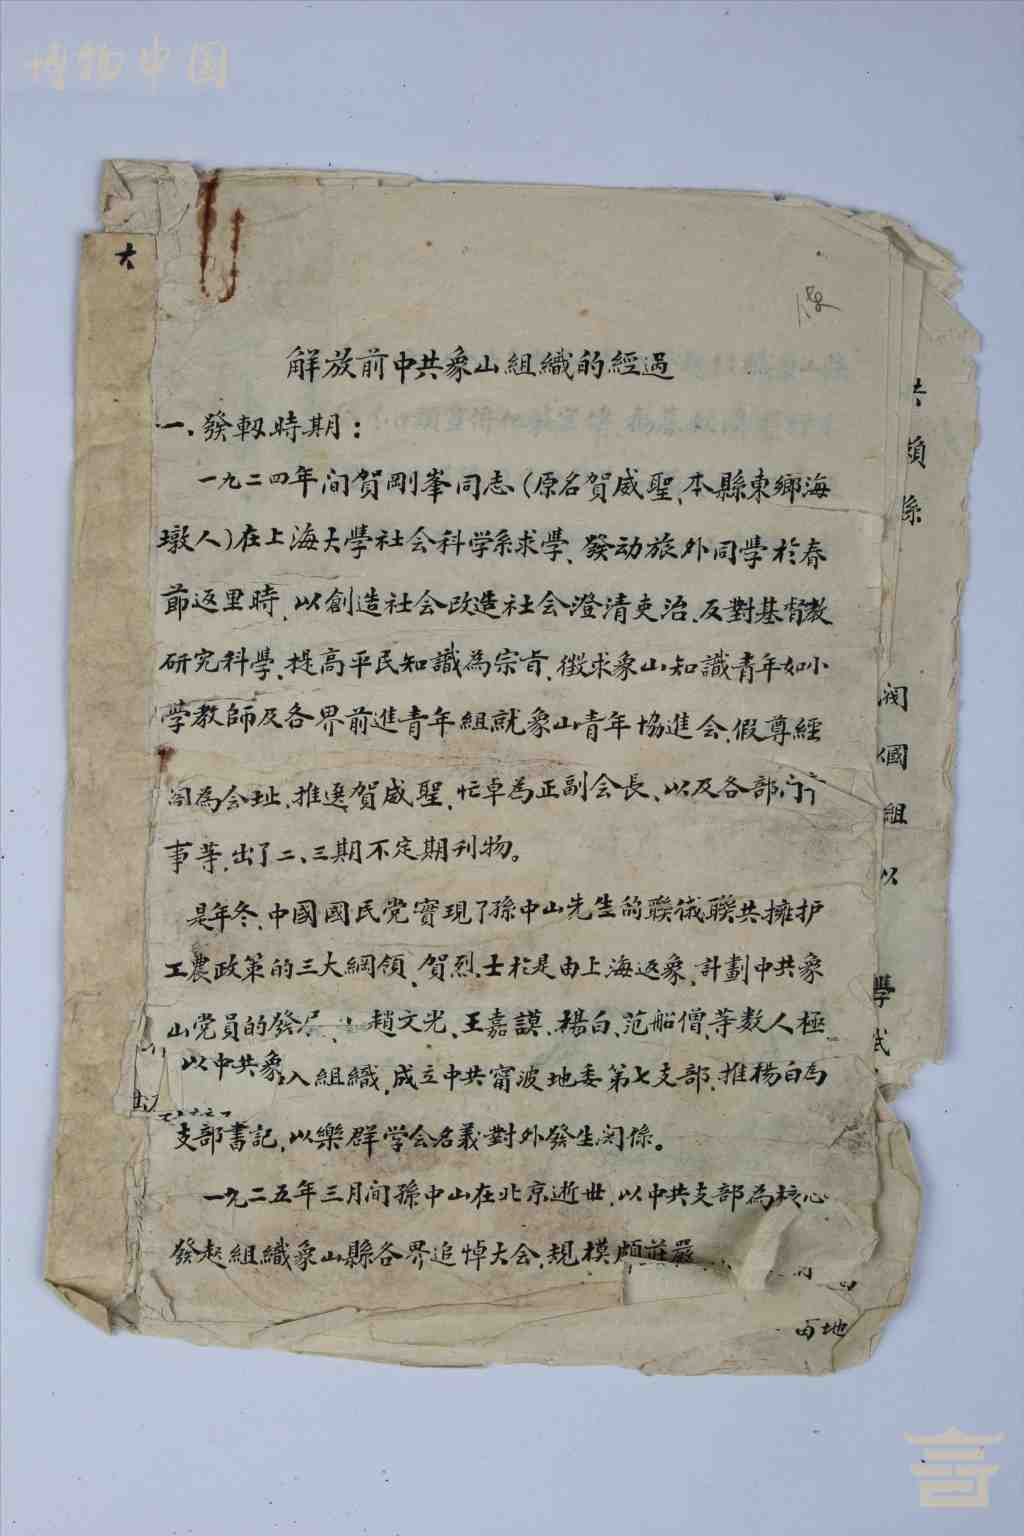 博物中国
大
解放前中共象山組織的經過
一.發軔時期：
一九二四年间贺剛峯同志(原名贺威聖、本縣東鄉海
墩人)在上海大學社会科学系求學、發动旅外同學於春
節返里時，以創造社会改造社会澄清吏治、反對基督教
研究科學、提高平民知識為宗旨，徴求象山知識青年如小
學教師及各界前進青年組就象山青年協進会、假尊經
阁為会址、推選贺威聖、忙卓為正副会長、以及各部
事等、出了二、三期不定期刊物。
是年冬、中國國民党實現了孫中山先生的聯俄聯共擁护
工農政策的三大綱領、贺烈士於是由上海返象、計劃中共象
山党員的發 趙文光、王嘉謨、楊白、范船僧、等数人極
以中共象入組織、成立中共甯波地委第七支部、推楊白為
支部書記、以樂群学会名義對外發生関係。
一九二五年三月间孫中山在北京逝世、以中共支部為核心
發起組織象山縣各界追悼大会、規模頗莊嚴
地
共
頻
係
閥
國
組
以
學